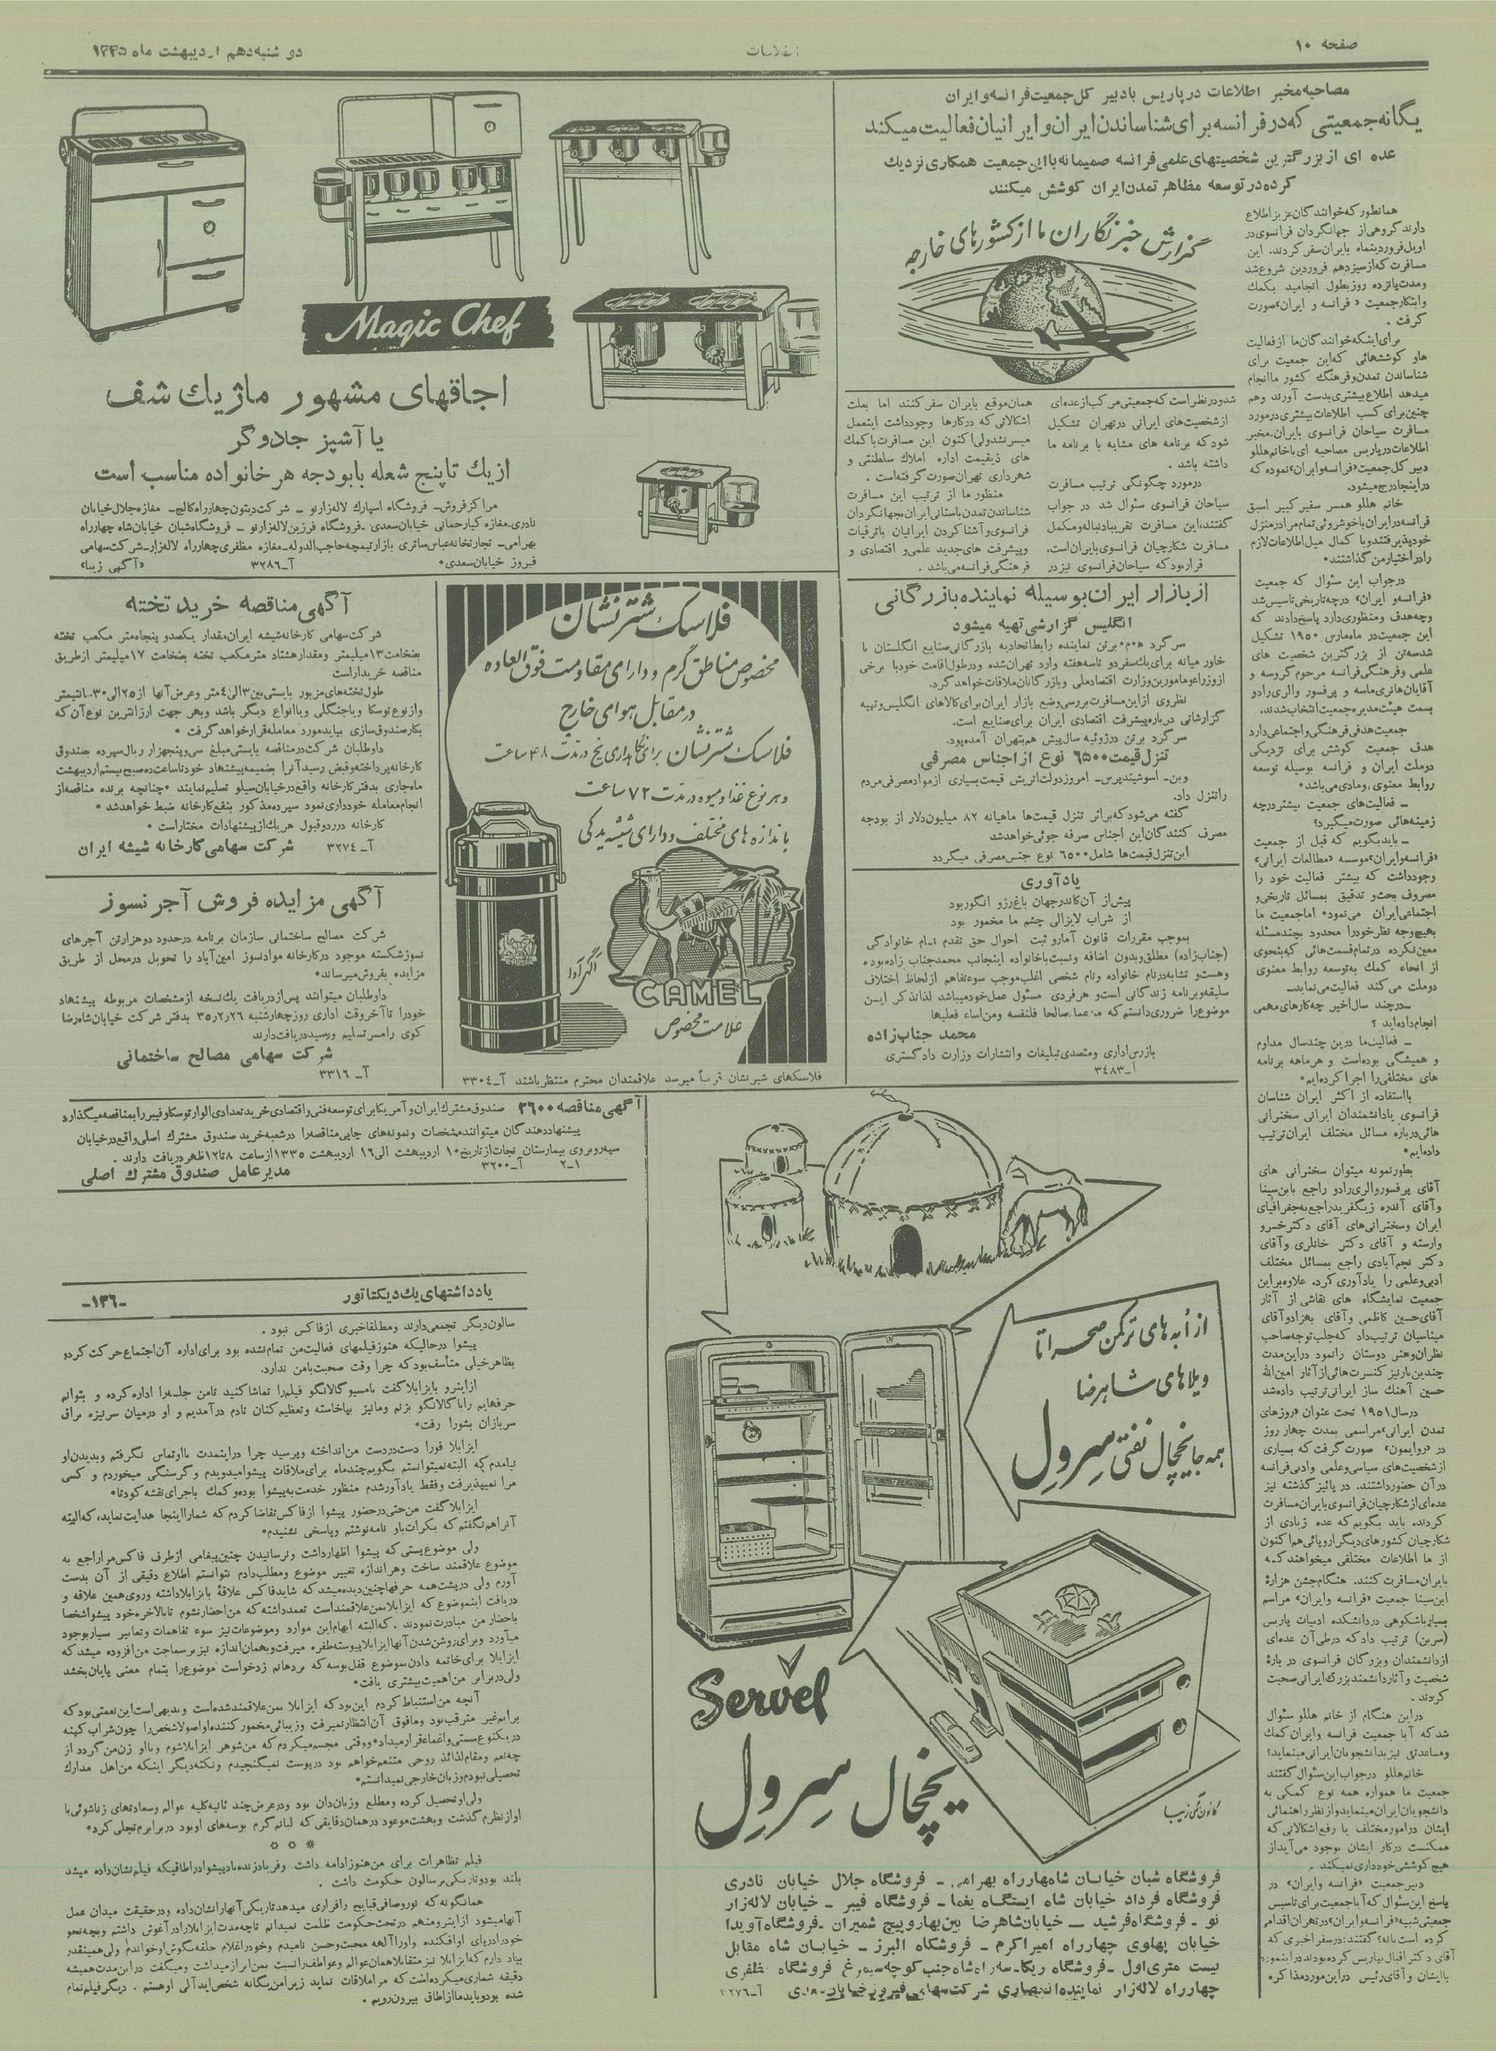 صفحه ۱۰
اطلاعات
دوشنبه دهم اردیبهشت ماه ۱۳۳۵
مصاحبه مخبر اطلاعات در پاریس با دبیر کل جمعیت فرانسه و ایران
یگانه جمعیتی که در فرانسه برای شناساندن ایران و ایرانیان فعالیت میکند
عده ای از بزرگترین شخصیتهای علمی فرانسه صمیمانه با این جمعیت همکاری نزدیک
کرده در توسعه مظاهر تمدن ایران کوشش میکنند
گزارش خبرنگاران ما از کشورهای خارجه
همانطور که خوانندگان عزیز اطلاع
دارند گروهی از جهانگردان فرانسوی در
اویل فروردینماه بایران سفر کردند. این
مسافرت که از سیزدهم فروردین شروع شد
و مدت پانزده روز بطول انجامید بکمک
و ابتکار جمعیت «فرانسه و ایران» صورت
گرفت.
برای اینکه خوانندگان ما از فعالیت
ها و کوششهائی که این جمعیت برای
شناساندن تمدن و فرهنگ کشور ما انجام
میدهد اطلاع بیشتری بدست آورند و هم
چنین برای کسب اطلاعات بیشتری در مورد
مسافرت سیاحان فرانسوی بایران، مخبر
اطلاعات در پاریس مصاحبه ای با خانم هللو
دبیر کل جمعیت «فرانسه و ایران» نموده که
در اینجا درج میشود.
خانم هللو همسر سفیر کبیر اسبق
فرانسه در ایران با خوشروئی تمام مرا در منزل
خود پذیرفتند و با کمال میل اطلاعات لازم
را در اختیار من گذاشتند.
در جواب این سئوال که جمعیت
«فرانسه و ایران» در چه تاریخی تاسیس شد
و چه هدف و منظوری دارد پاسخ دادند که
این جمعیت در ماه مارس ۱۹۵۰ تشکیل
شده من از بزرگترین شخصیت های
علمی و فرهنگی فرانسه مرحوم گروسه و
آقایان هانری ماسه و پرفسور والری رادو
بسمت هیئت مدیره جمعیت انتخاب شدند.
جمعیت هدفی فرهنگی و اجتماعی دارد
هدف جمعیت کوشش برای نزدیکی
دو ملت ایران و فرانسه بوسیله توسعه
روابط معنوی و مادی می باشد.
ـ فعالیت های جمعیت بیشتر در چه
زمینه هائی صورت میگیرد؟
ـ باید بگویم که قبل از جمعیت
«فرانسه و ایران» موسسه «مطالعات ایرانی»
وجود داشت که بیشتر فعالیت خود را
مصروف بحث و تدقیق بمسائل تاریخی و
اجتماعی ایران می نمود. اما جمعیت ما
بهیچوجه نظر خود را محدود بچند مسئله
معین نکرده در تمام قسمت هائی که بنحوی
از انحاء کمک به توسعه روابط معنوی
دو ملت می کند فعالیت می نماید.
ـ در چند سال اخیر چه کارهای مهمی
انجام داده اید؟
ـ فعالیت ما درین چند سال مداوم
و همیشگی بوده است و هر ماهه برنامه
های مختلفی را اجرا کرده ایم.
با استفاده از اکثر ایران شناسان
فرانسوی یا دانشمندان ایرانی سخنرانی
هائی درباره مسائل مختلف ایران ترتیب
داده ایم.
بطور نمونه میتوان سخنرانی های
آقای پرفسور والری رادو راجع بابن سینا
و آقای آندره زیگفرید راجع به جغرافیای
ایران و سخنرانی های آقای دکتر خسرو
وارسته و آقای دکتر خانلری و آقای
دکتر نجم آبادی راجع بمسائل مختلف
ادبی و علمی را یادآوری کرد. علاوه بر این
جمعیت نمایشگاه های نقاشی از آثار
آقای حسین کاظمی و آقای بهزاد و آقای
میناسیان ترتیب داد که جلب توجه صاحب
نظران و هنر دوستان را نمود در این مدت
چندین بار نیز کنسرت هائی از آثار امین الله
حسین آهنگ ساز ایرانی ترتیب داده شد
در سال ۱۹۵۱ تحت عنوان «روزهای
تمدن ایرانی» مراسمی بمدت چهار روز
در «روایمون» صورت گرفت که بسیاری
از شخصیت های سیاسی و علمی و ادبی فرانسه
در آن حضور داشتند. در پائیز گذشته نیز
عده ای از شکارچیان فرانسوی بایران مسافرت
کردند. باید بگویم که عده زیادی از
شکارچیان کشورهای دیگر اروپائی هم اکنون
از ما اطلاعات مختلفی میخواهند که
بایران مسافرت کنند. هنگام جشن هزاره
ابن سینا جمعیت «فرانسه و ایران» مراسم
بسیار باشکوهی در دانشکده ادبیات پاریس
(سربن) ترتیب داد که در طی آن عده ای
از دانشمندان و بزرگان فرانسوی در باره
شخصیت و آثار دانشمند بزرگ ایرانی صحبت
کردند.
در این هنگام از خانم هللو سئوال
شد که آیا جمعیت فرانسه و ایران کمک
و مساعدتی نیز بدانشجویان ایرانی مینماید؟
خانم هللو در جواب این سئوال گفتند
جمعیت ما همواره همه نوع کمکی به
دانشجویان ایران مینماید و از نظر راهنمائی
ایشان در امور مختلف یا رفع اشکالاتی که
ممکنست در کار ایشان بوجود می آید از
هیچ کوششی خودداری نمیکند.
دبیر جمعیت «فرانسه و ایران» در
پاسخ این سئوال که آیا جمعیت برای تاسیس
جمعیتی شبیه «فرانسه و ایران» در تهران اقدام
کرده است یا نه؟ گفتند: در سفر اخیری که
آقای دکتر اقبال بپاریس کرده بودند در اینمورد
با ایشان و آقای رئیس در این مورد مذاکره
شد و در نظر است که جمعیتی مرکب از عده ای
از شخصیت های ایرانی در تهران تشکیل
شود که برنامه های مشابه با برنامه ما
داشته باشد.
در مورد چگونگی ترتیب مسافرت
سیاحان فرانسوی سئوال شد در جواب
گفتند: این مسافرت تقریبا دنباله و مکمل
مسافرت شکارچیان فرانسوی بایران است.
قرار بود که سیاحان فرانسوی نیز در
همان موقع بایران سفر کنند اما بعلت
اشکالاتی که در کارها وجود داشت اینعمل
میسر نشد ولی اکنون این مسافرت با کمک
های ذیقیمت اداره املاک سلطنتی و
شهرداری تهران صورت گرفته است.
منظور ما از ترتیب این مسافرت
شناساندن تمدن باستانی ایران بجهانگردان
فرانسوی و آشنا کردن ایرانیان با ترقیات
و پیشرفت های جدید علمی و اقتصادی و
فرهنگی فرانسه می باشد.
از بازار ایران بوسیله نماینده بازرگانی
انگلیس گزارشی تهیه میشود
خاور میانه برای یک سفر دو تا سه هفته وارد تهران شده و در طول اقامت خود با برخی
از وزراء و مامورین وزارت اقتصاد ملی و بازرگانان ملاقات خواهد کرد.
نظروی از این مسافرت بررسی وضع بازار ایران برای کالاهای انگلیس و تهیه
گزارشاتی درباره پیشرفت اقتصادی ایران برای صنایع است.
سر گرد برتن در ژوئیه سال پیش هم بتهران آمده بود.
تنزل قیمت ۶۵۰۰ نوع از اجناس مصرفی
وین ـ آسوشیتدپرس ـ امروز دولت اتریش قیمت بسیاری از مواد مصرفی مردم
را تنزل داد.
گفته می شود که بر اثر تنزل قیمت ها ماهیانه ۸۲ میلیون دلار از بودجه
مصرف کنندگان این اجناس صرفه جوئی خواهد شد
این تنزل قیمت ها شامل ۶۵۰۰ نوع جنس مصرفی میگردد
یادآوری
پیش از آن کاندر جهان باغ رز و انگور بود
از شراب لایزالی چشم ما مخمور بود
بموجب مقررات قانون آمار و ثبت احوال حق تقدم نام خانوادگی
(جناب زاده) مطلق و بدون اضافه و نسبت با خانواده اینجانب محمد جناب زاده بوده
و هست و تشابه در نام خانواده و نام شخصی اغلب موجب سوء تفاهم از لحاظ اختلاف
سلیقه و برنامه زندگانی است و هر فردی مسئول عمل خود میباشد لذا تذکر این
موضوع را ضروری دانستم که من عمل صالحا فلنفسه و من اساء فعلیها
محمد جناب زاده
بازرس اداری و متصدی تبلیغات و انتشارات وزارت دادگستری
آ ـ ۳۴۸۳
Magic Chef
اجاقهای مشهور ماژیک شف
یا آشپز جادوگر
از یک تا پنج شعله با بودجه هر خانواده مناسب است
مراکز فروش ـ فروشگاه اسپارک لاله زار نو ـ شرکت دیتون چهارراه کالج ـ مغازه جلال خیابان
نادری ـ مغازه کیارحمانی خیابان سعدی ـ فروشگاه فرزین لاله زار نو ـ فروشگاه شبان خیابان شاه چهارراه
بهرامی ـ تجارتخانه عباس ساتری بازار تیمچه حاجب الدوله ـ مغازه مظفری چهارراه لاله زار ـ شرکت سهامی
فیروز خیابان سعدی.
آ ـ ۳۲۸۶
«آگهی زیبا»
آگهی مناقصه خرید تخته
شرکت سهامی کارخانه شیشه ایران مقدار یکصد و پنجاه متر مکعب تخته
بضخامت ۱۳ میلیمتر و مقدار هشتاد متر مکعب تخته بضخامت ۱۷ میلیمتر از طریق
مناقصه خریدار است
طول تخته های مزبور بایستی بین ۳ الی ۴ متر و عرض آنها از ۲۵ الی ۳۰ سانتیمتر
و از نوع توسکا و یا جنگلی و یا انواع دیگر باشد و بهر جهت ارزانترین نوع آن که
بکار صندوق سازی بیاید مورد معامله قرار خواهد گرفت.
داوطلبان شرکت در مناقصه بایستی مبلغ سی و پنجهزار ریال سپرده بصندوق
کارخانه پرداخته و قبض رسید آنرا بضمیمه پیشنهاد خود تا ساعت ده صبح بیستم اردیبهشت
ماه جاری بدفتر کارخانه واقع در خیابان سیلو تسلیم نمایند. چنانچه برنده مناقصه از
انجام معامله خودداری نمود سپرده مذکور بنفع کارخانه ضبط خواهد شد.
کارخانه در رد و قبول هر یک از پیشنهادات مختار است.
آ ـ ۳۲۷۴ شرکت سهامی کارخانه شیشه ایران
آگهی مزایده فروش آجر نسوز
شرکت مصالح ساختمانی سازمان برنامه در حدود دو هزار تن آجرهای
نسوز شکسته موجود در کارخانه مواد نسوز امین آباد را تحویل در محل از طریق
مزایده بفروش میرساند.
داوطلبان میتوانند پس از دریافت یک نسخه از مشخصات مربوطه پیشنهاد
خود را تا آخر وقت اداری روز چهارشنبه ۳۵/۲/۲۶ بدفتر شرکت خیابان شاهرضا
کوی رامسر تسلیم و رسید دریافت دارند
شرکت سهامی مصالح ساختمانی
آ ـ ۳۳۱۶
فلاسک شتر نشان
مخصوص مناطق گرم و دارای مقاومت فوق العاده
در مقابل هوای خارج
فلاسک شتر نشان برای نگاهداری یخ در مدت ۴۸ ساعت
و هر نوع غذا و میوه در مدت ۷۲ ساعت
با اندازه های مختلف و دارای شیشه یدکی
آگهی آوا
CAMEL
علامت مخصوص
فلاسکهای شیر نشان قریباً میرسد علاقمندان محترم منتظر باشند آ ـ ۳۳۰۴
آگهی مناقصه ۳۶۰۰ صندوق مشترک ایران و آمریکا برای توسعه فنی و اقتصادی خرید تعدادی الوار توسکا و فیبر را بمناقصه میگذارد
پیشنهاد دهندگان میتوانند مشخصات و نمونه های چاپی مناقصه را در شعبه خرید صندوق مشترک اصلی واقع در خیابان
سپه روبروی بیمارستان نجات از تاریخ ۱۰ اردیبهشت الی ۱۶ اردیبهشت ۱۳۳۵ از ساعت ۸ تا ۱۲ ظهر دریافت دارند.
۲ـ۱ آ ـ ۳۲۰۰ مدیر عامل صندوق مشترک اصلی
یادداشتهای یک دیکتاتور
ـ۱۳۶ـ
سالون دیگر تجمعی دارند و مطلقا خبری از فاکس نبود.
پیشوا در حالیکه هنوز فیلمهای فعالیت من تمام نشده بود برای اداره آن اجتماع حرکت کرد و
بظاهر خیلی متأسف بود که چرا وقت صحبت با من ندارد.
از اینرو با یزابلا گفت با مسیو کالانگو فیلم را تماشا کنید تا من جلسه را اداره کرده و بتوانم
حرفهایم را با کالانگو بزنم و ما نیز بپاخاسته و تعظیم کنان تا دم در آمدیم و او در میان سرنیزه براق
سربازان بشورا رفت.
ایزابلا فورا دست در دست من انداخته و پرسید چرا در اینمدت با او تماس نگرفتم و بدیدن او
نیامدم که البته نمیتوانستم بگویم چند ماه برای ملاقات پیشوا میدویدم و گرسنگی میخوردم و کسی
مرا نمیپذیرفت و فقط یادآور شدم منظور خدمت به پیشوا بوده و کمک باجرای نقشه کودتا.
ایزابلا گفت من حتی در حضور پیشوا از فاکس تقاضا کردم که شما را اینجا هدایت نماید، که البته
آنرا هم نگفتم که بکرات باو نامه نوشتم و پاسخی نشنیدم.
ولی موضوع پستی که پیشوا اظهار داشت و نرسانیدن چنین پیغامی از طرف فاکس مرا راجع به
موضوع علاقمند ساخت و هر اندازه تغییر موضوع و مطلب دادم نتوانستم اطلاع دقیقی از آن بدست
آورم ولی در پشت همه حرفها چنین دیده میشد که شاید فاکس علاقه با یزابلا داشته و روی همین علاقه و
دریافت اینموضوع که ایزابلا بمن علاقمند است تعمد داشته که من احضار نشوم تا بالاخره خود پیشوا شخصا
باحضار من مبادرت نمودند. که البته ابهام این موارد و موضوعات نیز سوء تفاهمات و تعابیر بسیار بوجود
میآورد و برای روشن شدن آنها ایزابلا پیوسته طفره میرفت و بهمان اندازه نیز بر سماجت من افزوده میشد که
ایزابلا برای خاتمه دادن بموضوع قفل بوسه که بر دهانم زد خواست موضوع را بتمام معنی پایان بخشد
ولی در برابر من اهمیت بیشتری یافت.
آنچه من استنباط کردم این بود که ایزابلا بمن علاقمند شده است و بدیهی است این نعمتی بود که
برایم غیر مترقب بود و مافوق آن انتظار نمیرفت و زیبائی مخمور کننده او اصولا شخص را چون شراب کهنه
در یکنوع سستی و اغماء قرار میداد. و وقتی مجسم میکردم که من شوهر ایزابلا شوم و یا او زن من گردد از
چه نعم و مقام لذائذ روحی متنعم خواهم بود در پوست نمیگنجیدم و نکته دیگر اینکه من اهل مدارک
تحصیلی نبودم و زبان خارجی نمیدانستم.
ولی او تحصیل کرده و مطلع و زبان دان بود و در عرض چند ثانیه کلیه عوالم و سعادتهای زناشوئی با
او از نظرم گذشت و بهشت موعود در همان دقایقی که لبانم گرم بوسه های او بود در برابرم تجلی کرد.
* * *
فیلم تظاهرات برای من هنوز ادامه داشت و فریاد زنده باد پیشوا در اطاقیکه فیلم نشان داده میشد
بلند بود و تاریکی بر سالون حکومت داشت.
همانگونه که نور و صافی قبایح را فراری میدهد تاریکی آنها را نشان داده و در حقیقت میدان عمل
آنها میشود از اینرو منهم در تحت حکومت ظلمت نمیدانم تا چه مدت ایزابلا را در آغوش داشتم و بچه نحو
خود را در پای او افکنده و او را آلهه محبت و حسن نامیدم و خود را غلام حلقه بگوش او خواندم ولی همینقدر
بیاد دارم که ایزابلا نیز متقابلا همان عوالم و عواطف را نسبت بمن ابراز میداشت و میگفت در این مدت همیشه
دقیقه شماری میکرده است که مرا ملاقات نماید زیرا من یگانه شخص ایده آلی او هستم. دیگر فیلم تمام
شده بود و باید ما از اطاق بیرون رویم.
از اُبه های ترکمن صحرا تا
ویلاهای شاهرضا
همه جا یخچال نفتی سِروِل
Servel
یخچال سِروِل
کانون آگهی زیبا
فروشگاه شبان خیابان شاه چهارراه بهرامی ـ فروشگاه جلال خیابان نادری
فروشگاه فرداد خیابان شاه ایستگاه یغما ـ فروشگاه فیبر ـ خیابان لاله زار
نو ـ فروشگاه فرشید ـ خیابان شاهرضا بین بهار و پیچ شمیران ـ فروشگاه آویدا
خیابان پهلوی چهارراه امیر اکرم ـ فروشگاه البرز ـ خیابان شاه مقابل
بیست متری اول ـ فروشگاه ریکا ـ سه راه شاه جنب کوچه سیمرغ فروشگاه مظفری
چهارراه لاله زار نماینده انحصاری شرکت سهامی فیروز خیابان سعدی آ ـ ۳۲۷۶